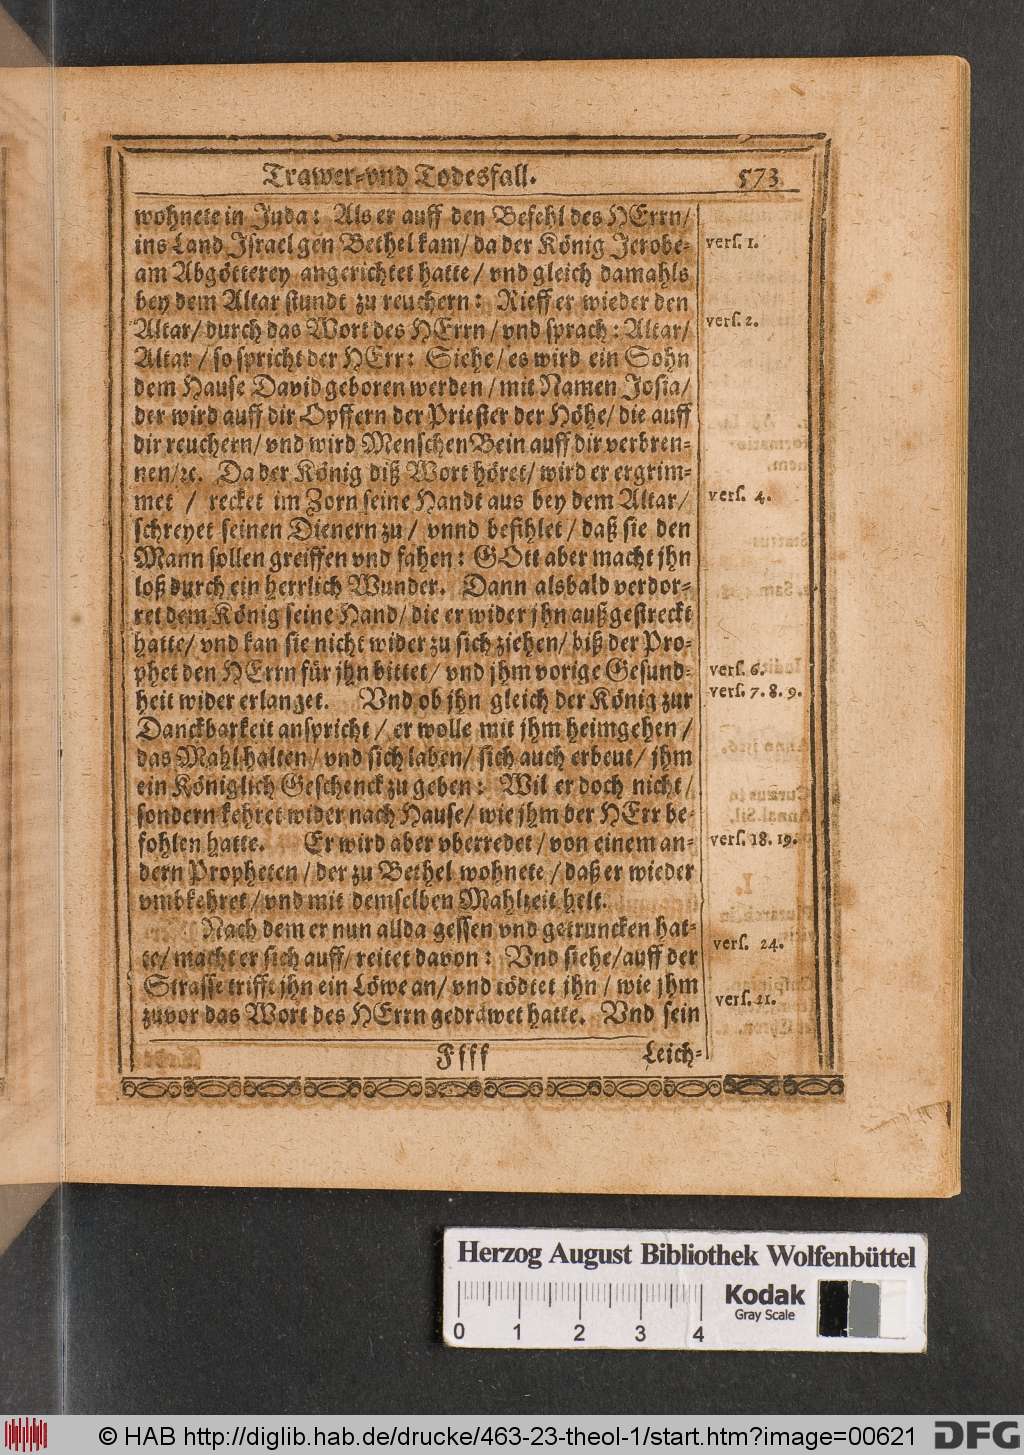 Trawer-vnd Todesfall. 573.
wohnete in Juda: Als er auff den Befehl des HErrn/
ins Land Jsrael gen Bethel kam/ da der König Jerobe- vers. 1.
am Abgötterey angerichtet hatte/ vnd gleich damahls
bey dem Altar stundt zu reuchern: Rieff er wieder den
Altar/ durch das Wort des HErrn/ vnd sprach: Altar/ vers. 2.
Altar/ so spricht der HErr: Siehe/ es wird ein Sohn
dem Hause David geboren werden/ mit Namen Josia/
der wird auff dir Opffern der Priester der Höhe/ die auff
dir reuchern/ vnd wird Menschen Bein auff dir verbren-
nen/ꝛc. Da der König diß Wort höret/ wird er ergrim-
met / recket im Zorn seine Handt aus bey dem Altar/ vers. 4.
schreyet seinen Dienern zu/ vnnd befihlet/ daß sie den
Mann sollen greiffen vnd fahen: GOtt aber macht jhn
loß durch ein herrlich Wunder. Dann alsbald verdor-
ret dem König seine Hand/ die er wider jhn außgestreckt
hatte/ vnd kan sie nicht wider zu sich ziehen/ biß der Pro-
phet den HErrn für jhn bittet/ vnd jhm vorige Gesund- vers. 6.
heit wider erlanget. Vnd ob jhn gleich der König zur vers. 7. 8. 9.
Danckbarkeit anspricht/ er wolle mit jhm heimgehen/
das Mahl halten/ vnd sich laben/ sich auch erbeut/ jhm
ein Königlich Geschenck zu geben: Wil er doch nicht/
sondern kehret wider nach Hause/ wie jhm der HErr be-
fohlen hatte. Er wird aber vberredet/ von einem an- vers. 18. 19.
dern Propheten/ der zu Bethel wohnete/ daß er wieder
vmbkehret/ vnd mit demselben Mahlzeit helt.
Nach dem er nun allda gessen vnd getruncken hat-
te/ macht er sich auff/ reitet davon: Vnd siehe/ auff der vers. 24.
Strasse trifft jhn ein Löwe an/ vnd tödtet jhn/ wie jhm
zuvor das Wort des HErrn gedräwet hatte. Vnd sein vers. 21.
Ffff Leich-
Herzog August Bibliothek Wolfenbüttel
Kodak
Gray Scale
0 1 2 3 4
© HAB http://diglib.hab.de/drucke/463-23-theol-1/start.htm?image=00621
DFG